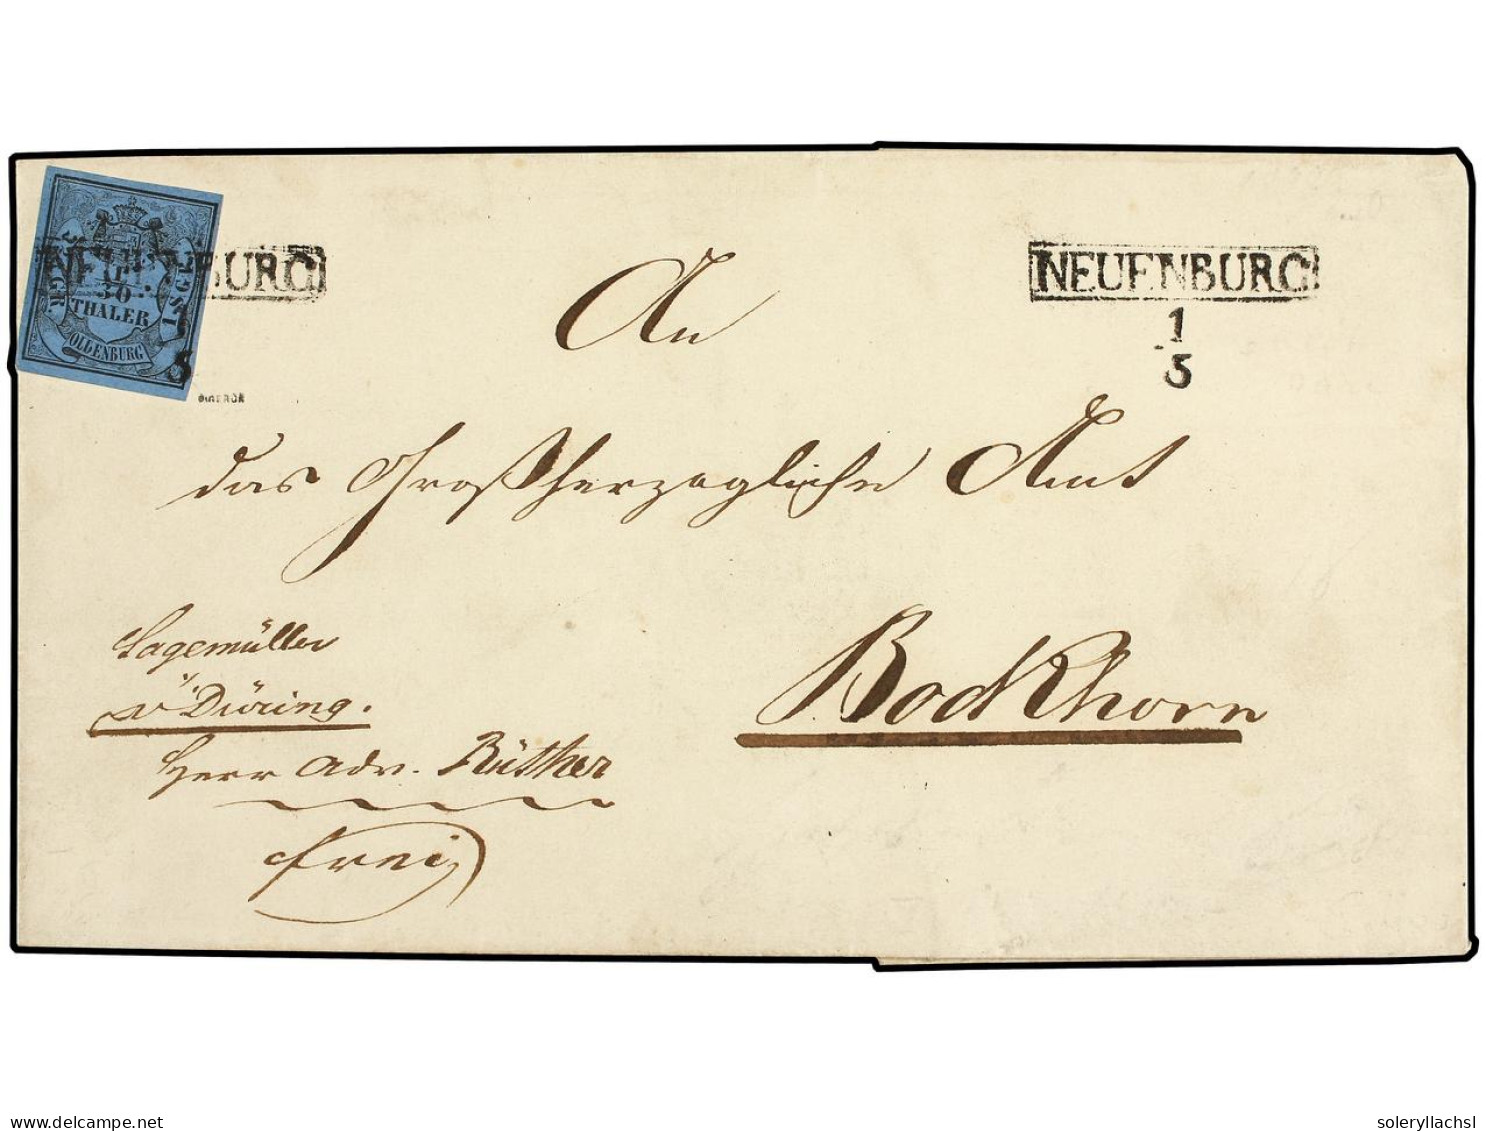 NEUENBURG
1
5
NEUENBURG
1/30
THALER
OLDENBURG
An
das Großherzogliche Amt
Bockhorn
Lagemüller
v Düring.
Herr Adv. Rüther
frei
delcampe.net
soleryllachsl